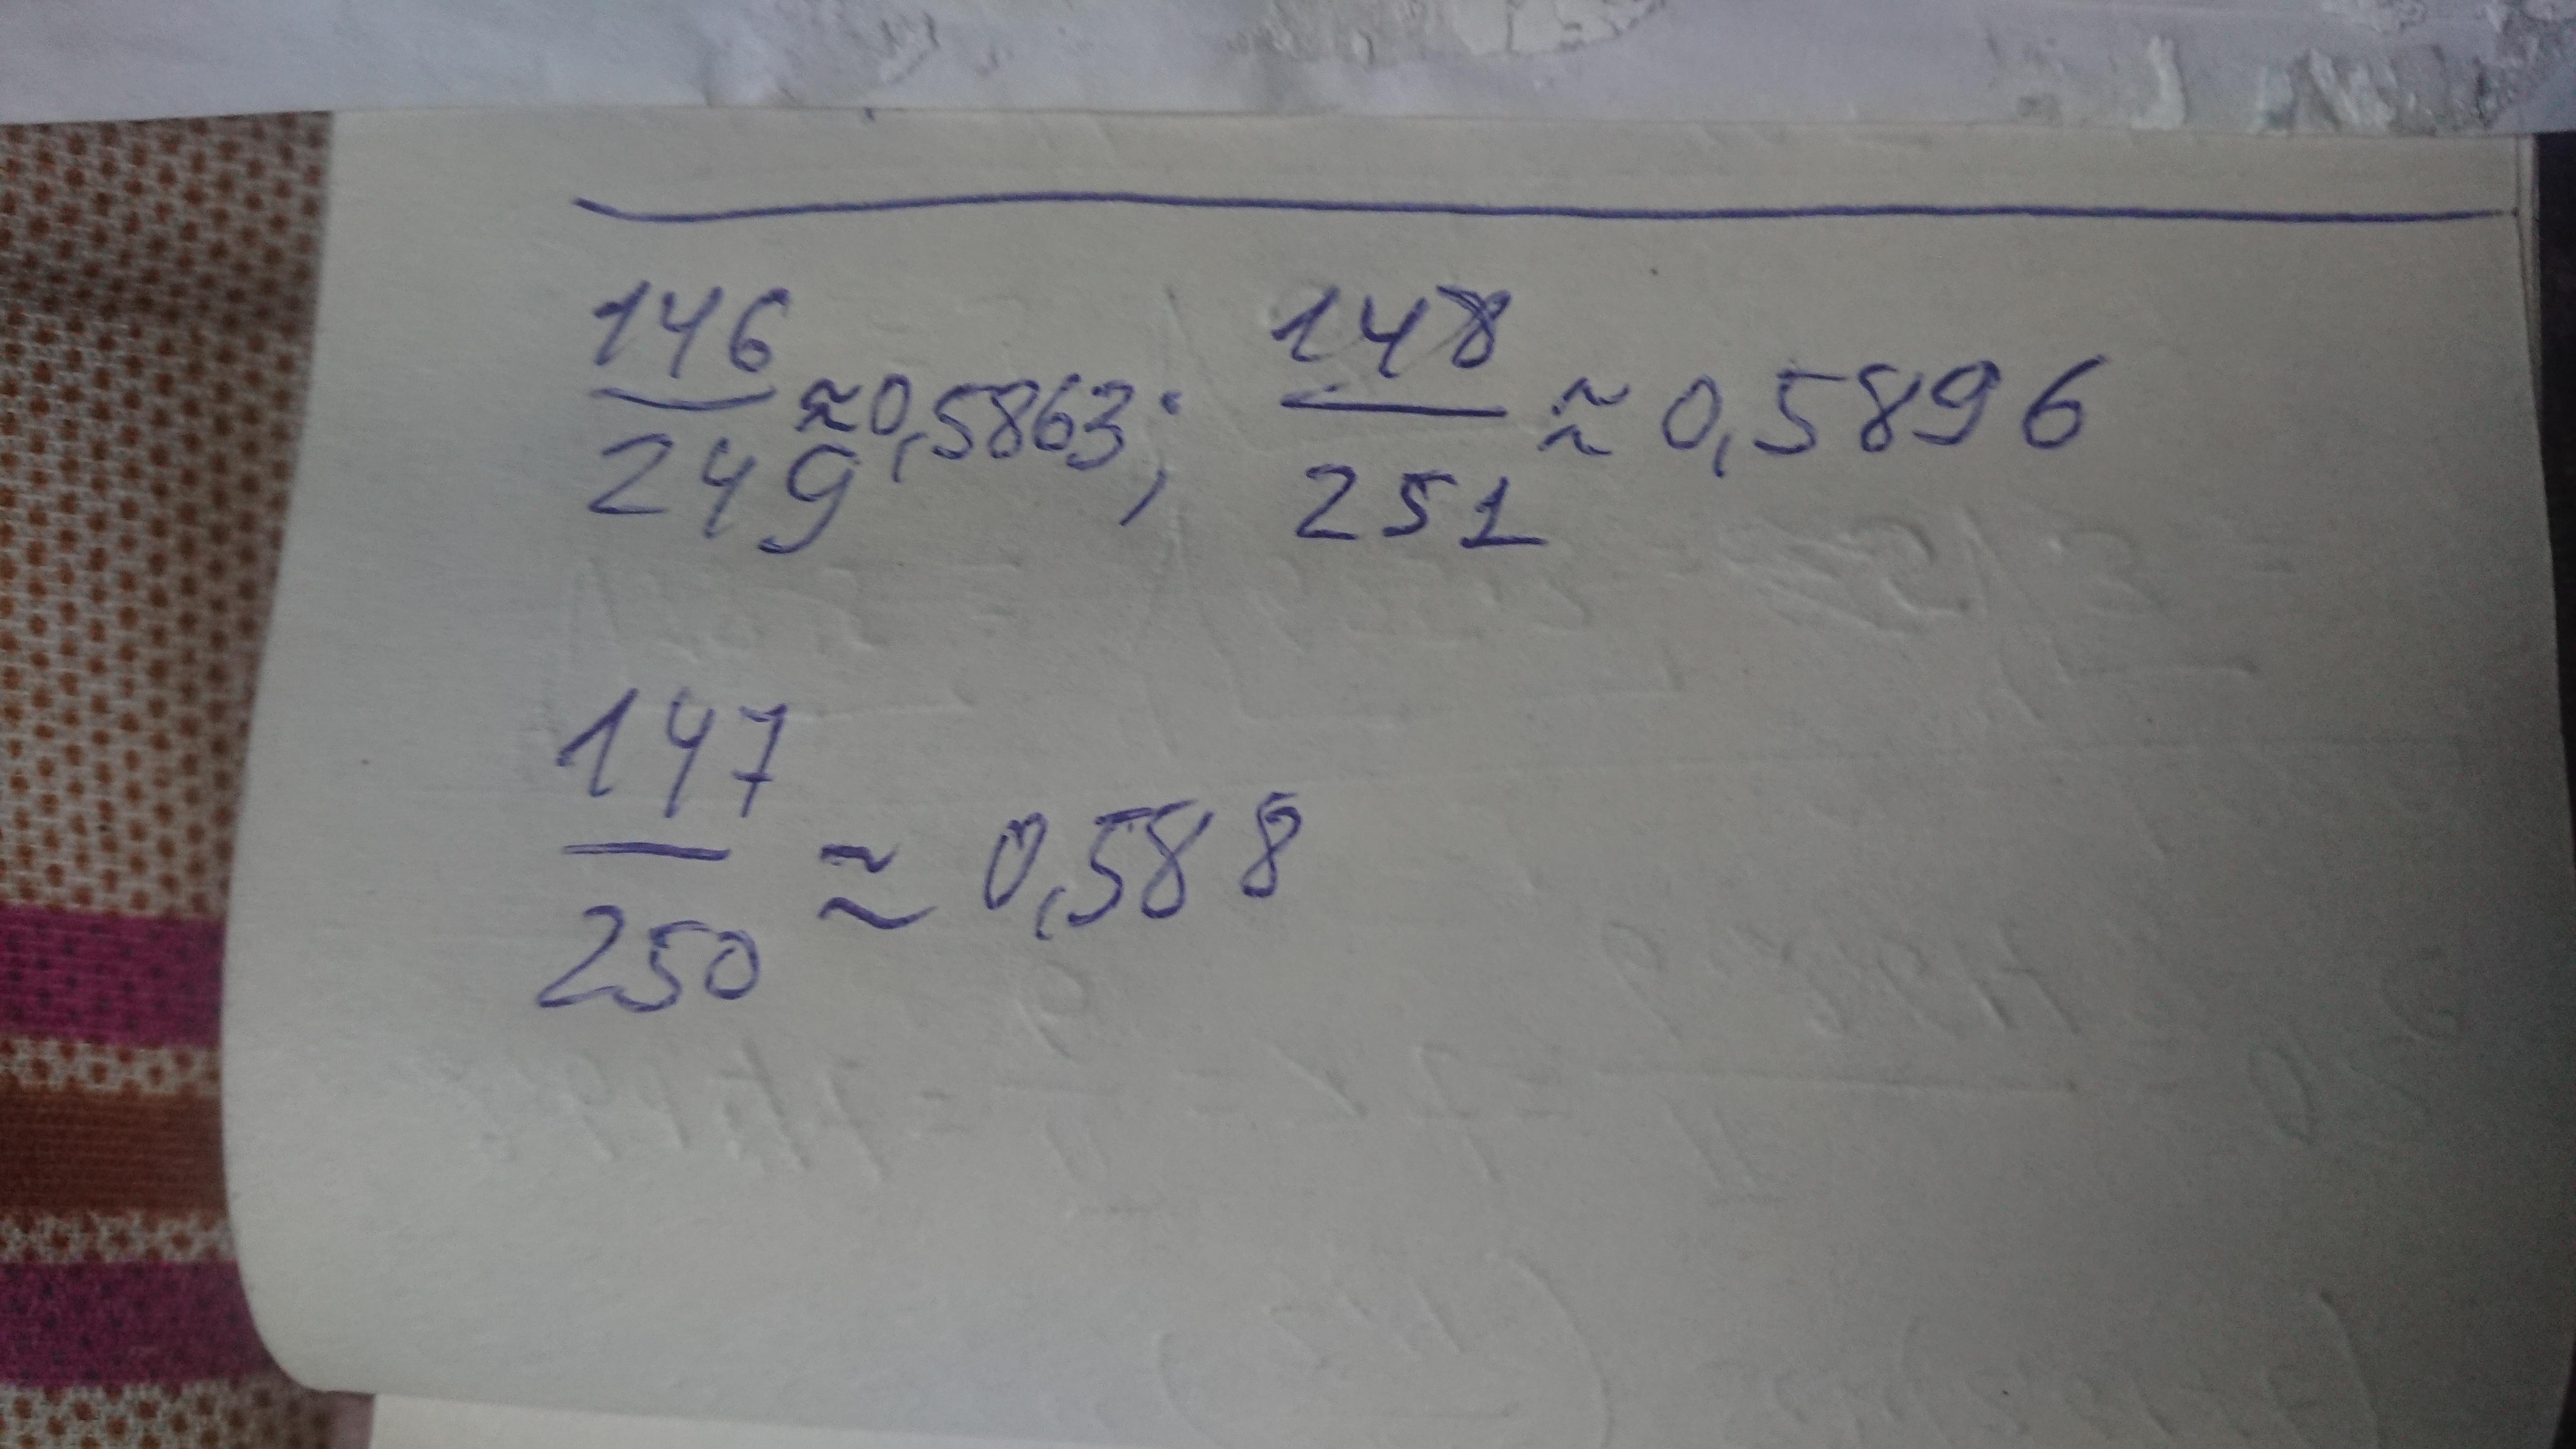 146/249 ≈ 0,5863; 148/251 ≈ 0,5896
147/250 ≈ 0,588